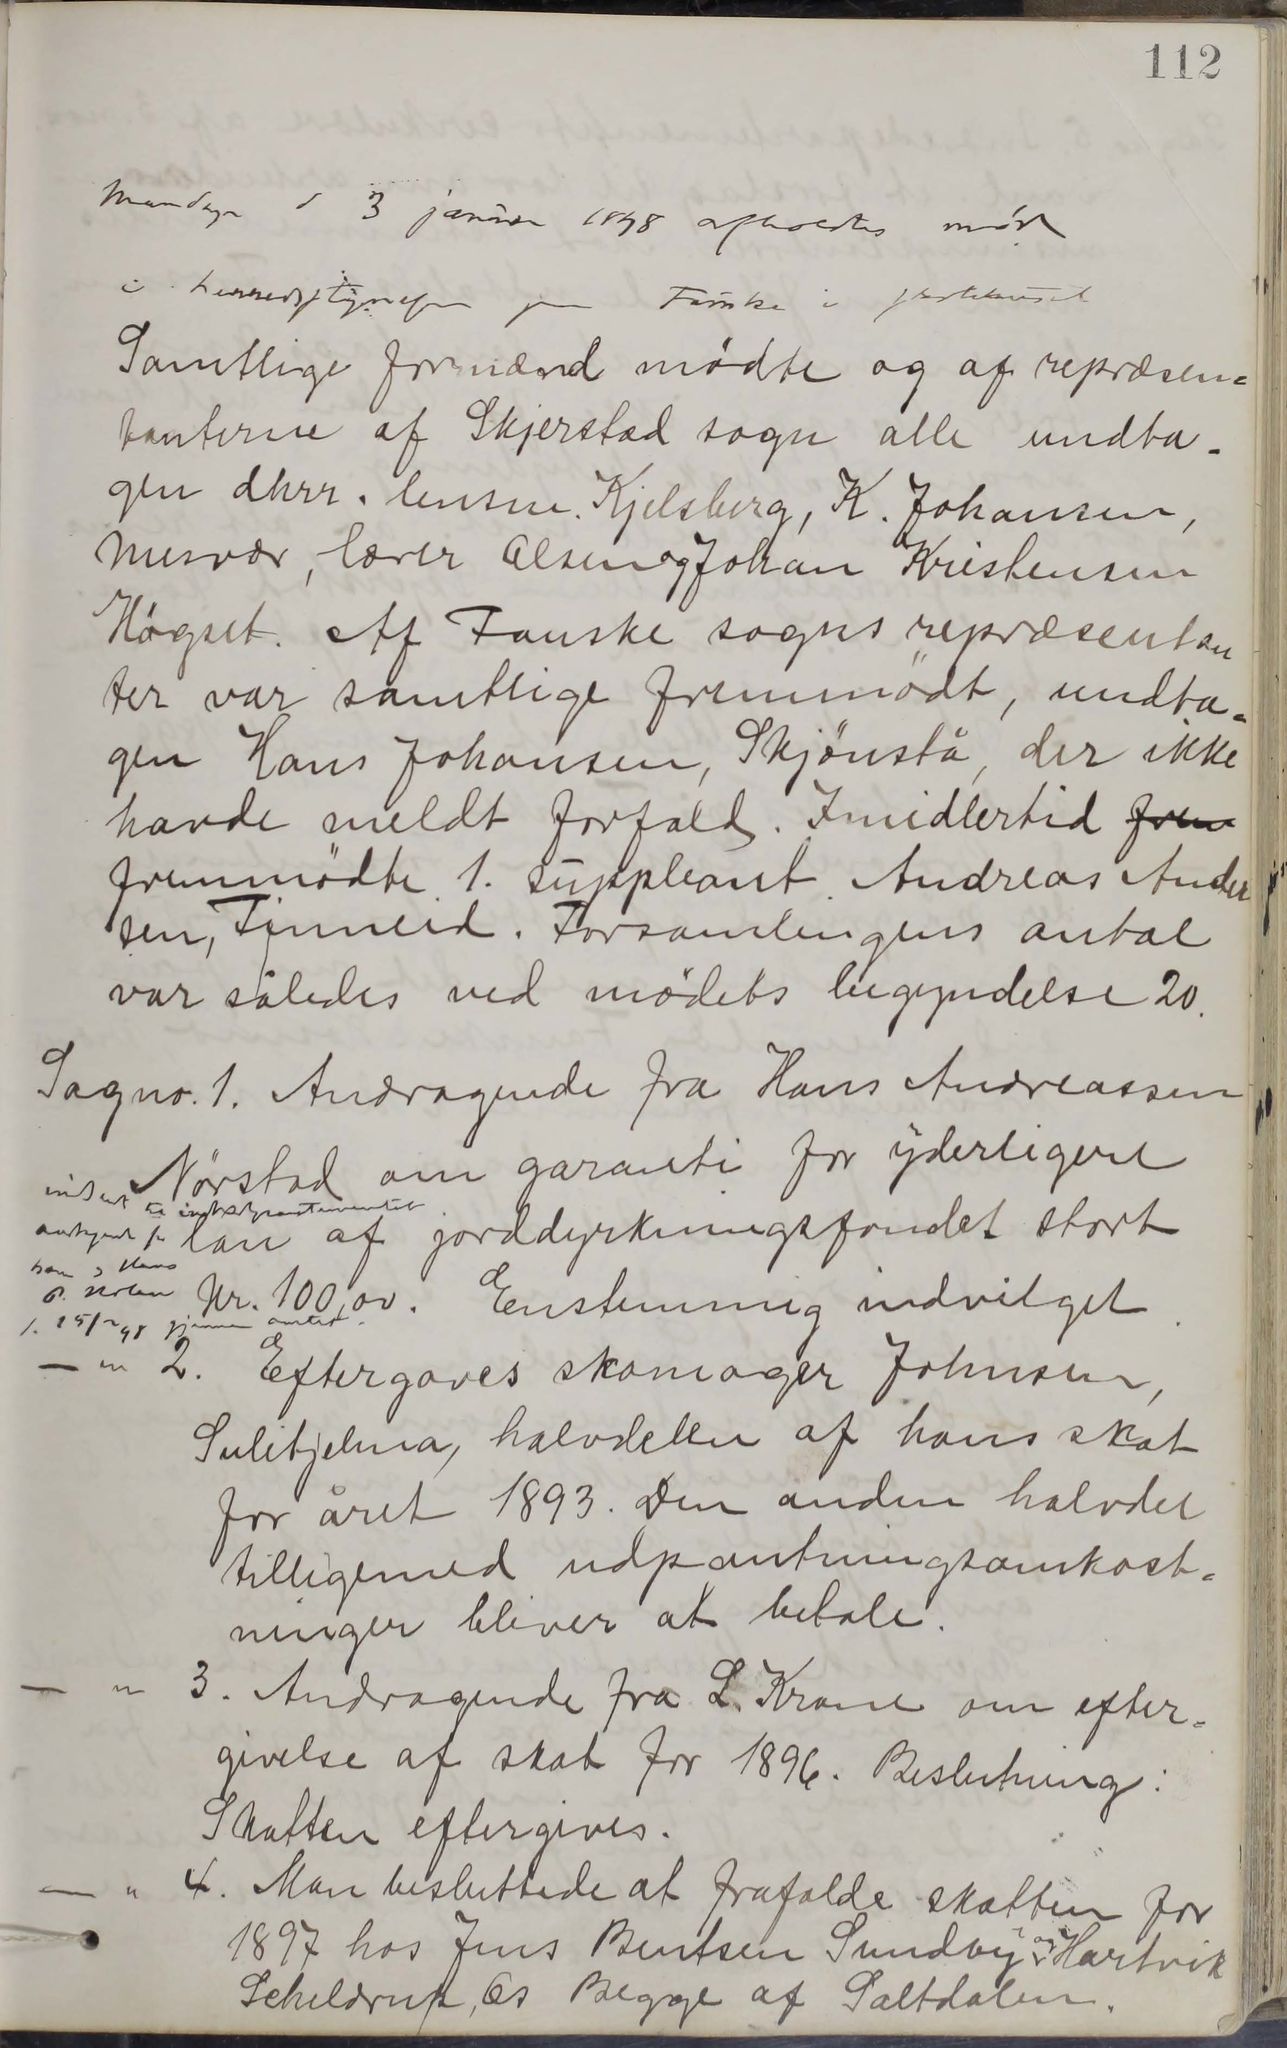 112
Mandag d 3 januar 1898 afholdtes möde
i herredsstyrelsen for Fauske i
Samtlige formænd mödte og af repræsen=
tanterne af Skjerstad sogn alle undta-
gen dhrr. lensm. Kjelsberg, K. Johansen,
Misvær, lærer Olsen og Johan Kristensen
Högset. Af Fauske sogns repræsentan
ter var samtlige fremmödt, undta=
gen Hans Johansen, Skjönstå, der ikke
havde meldt forfald. Imidlertid frem
fremmödte 1. suppleant Andreas Ander
sen, Finneid. Forsamlingens antal
var således ved mödets begyndelse 20.
Sagno. 1. Andragende fra Hans Andreassen
Nörstad om garanti for yderligere
lån af jorddyrkningsfondet stort
Kr. 100,00. Enstemmig indvilget.
indsendt til
1. 25/2 98 gjennem amtet.
— " 2. Eftergaves skomager Johnsen,
Sulitjelma, halvdelen af hans skat
for året 1893. Den anden halvdel
tilligemed udpantningsomkost=
ninger bliver at betale.
— " 3. Andragende fra L. Krane om efter=
givelse af skat for 1896. Beslutning:
Skatten eftergives.
— " 4. Man besluttede at frafalde skatten for
1897 hos Jens Bentsen Sundby og Hartvik
Scheldrup, Os Begge af Saltdalen.